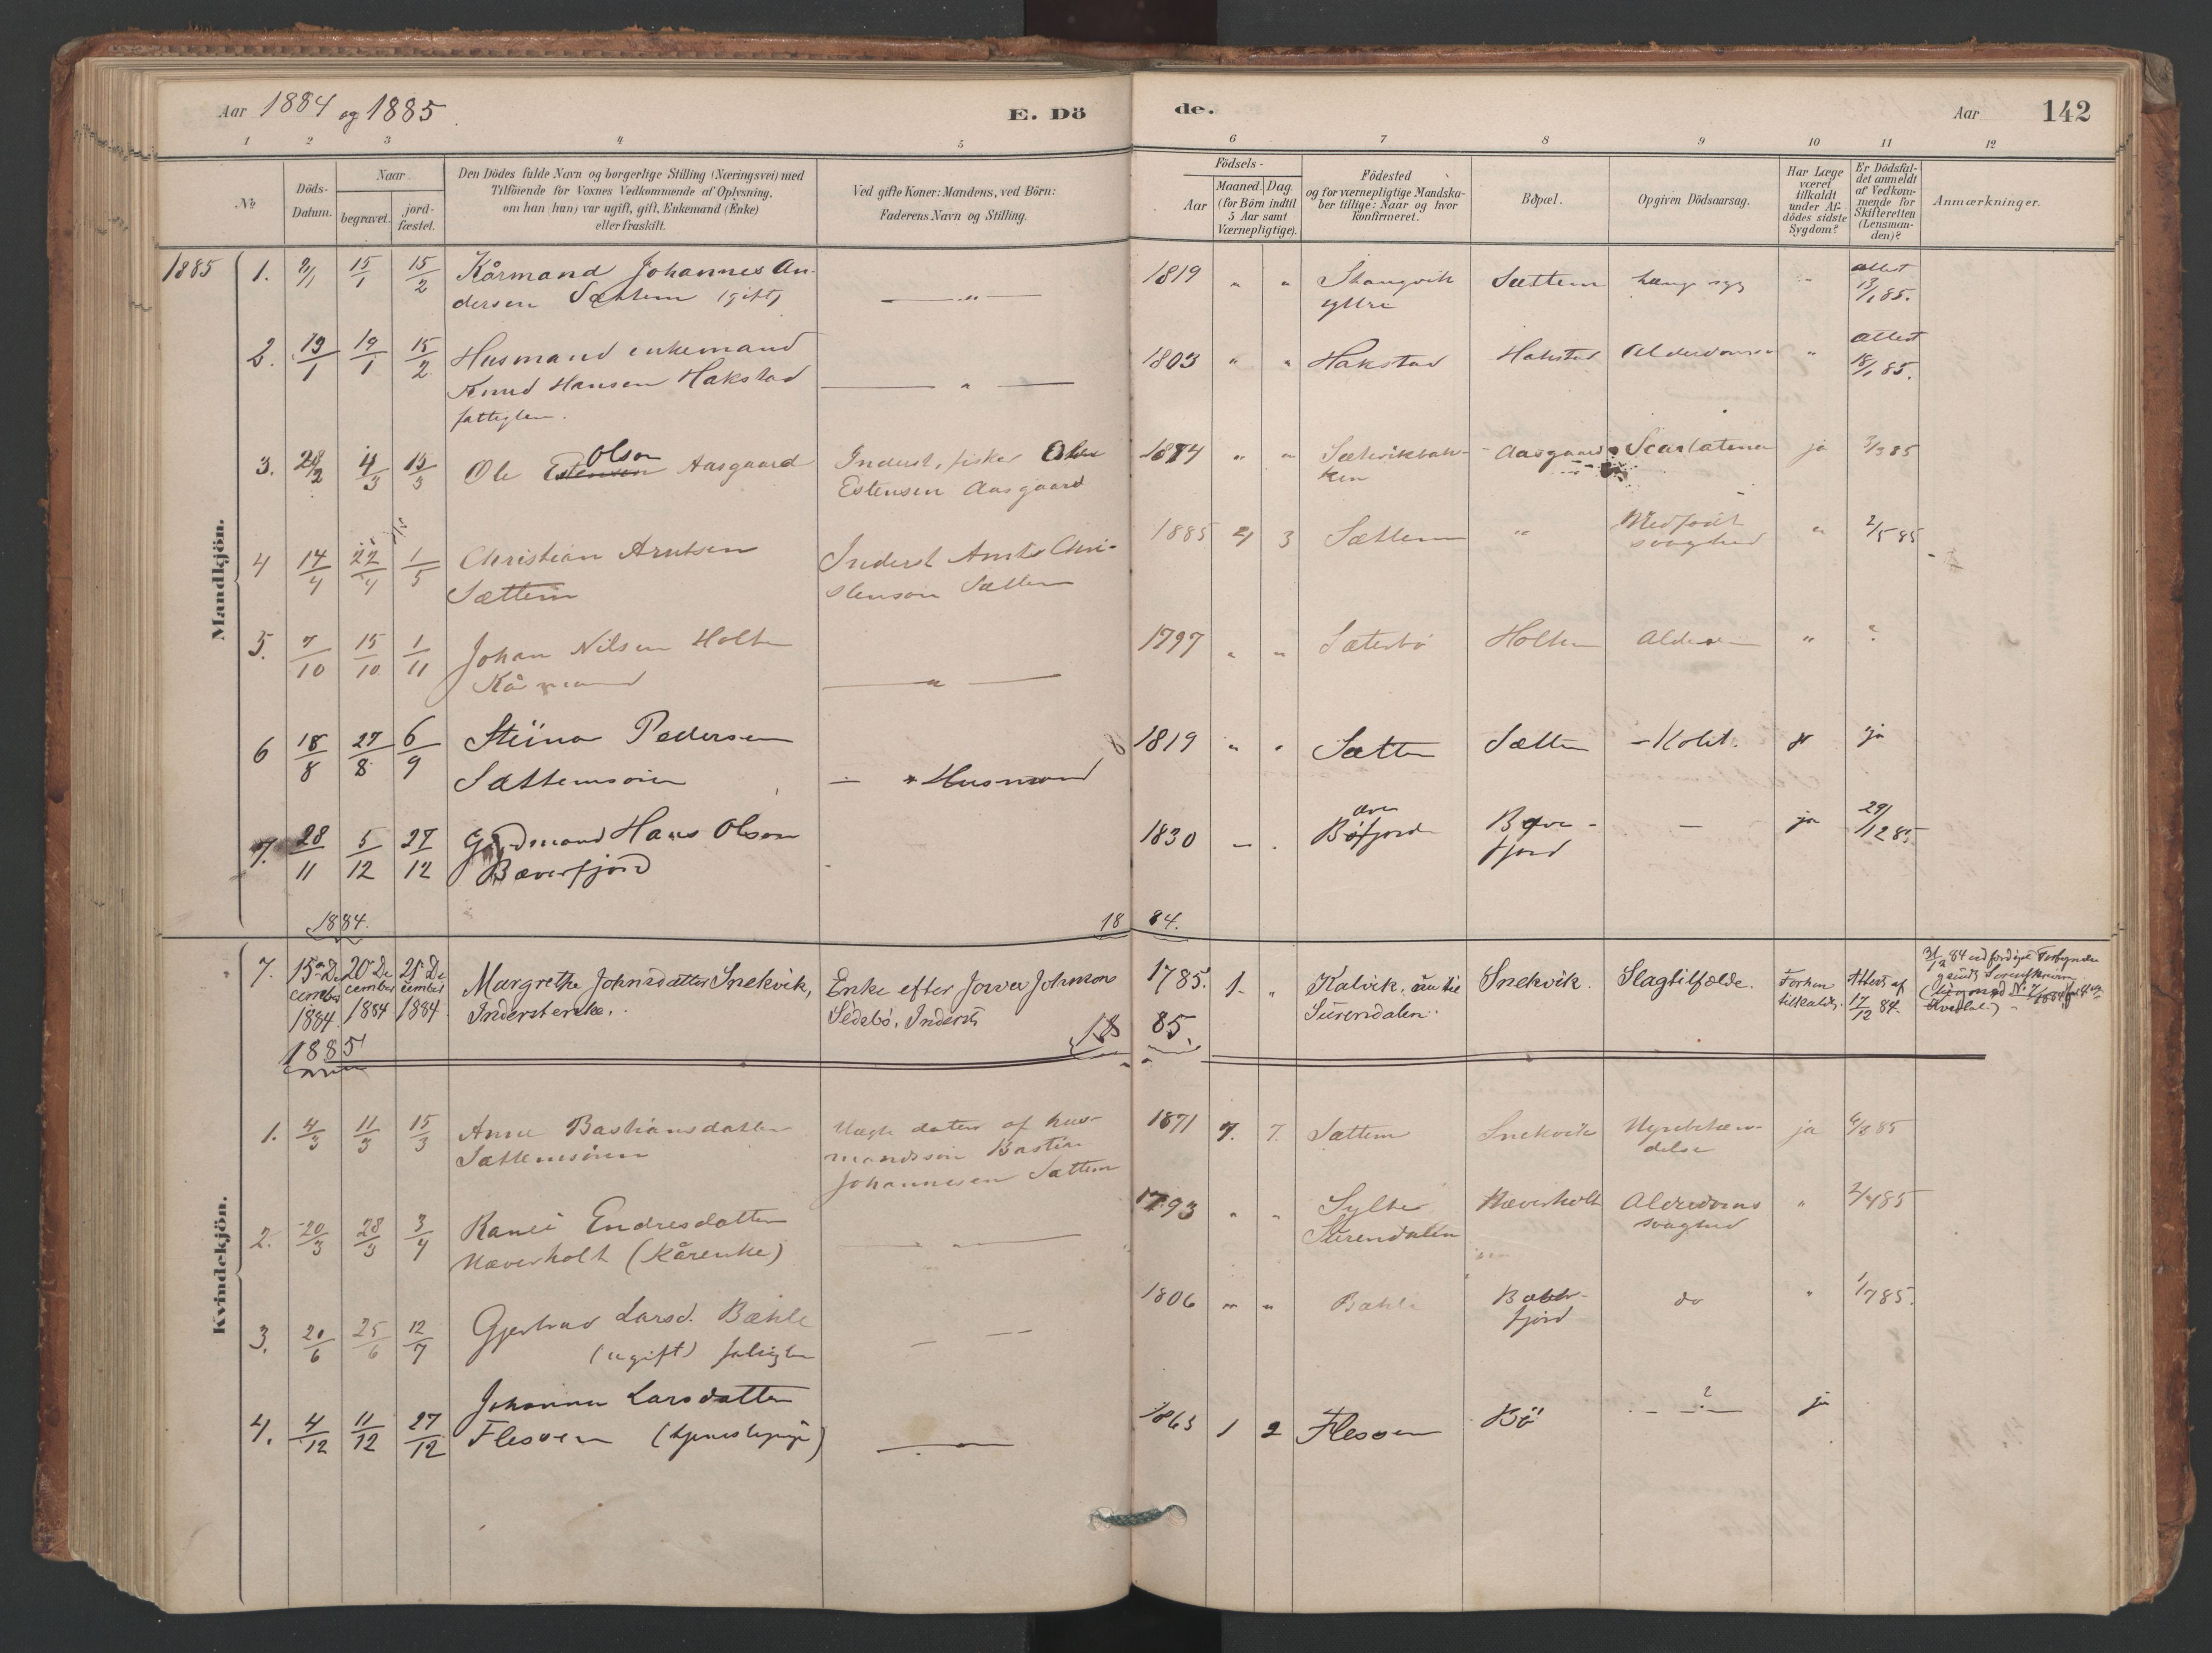 Aar 1884 og 1885.
E. Dö
de.
Aar
142
1 2 3 4 5 6 7 8 9 10 11 12
No
Döds-
Datum.
Naar
begravet.
jord-
fæstet.
Den Dödes fulde Navn og borgerlige Stilling (Næringsvei) med
Tilföiende for Voxnes Vedkommende af Oplysning,
om han (hun) var ugift, gift, Enkemand (Enke)
eller fraskilt.
Ved gifte Koner: Mandens, ved Börn:
Faderens Navn og Stilling.
Födsels-
Aar
Maaned. Dag.
(for Börn indtil
5 Aar samt
Værnepligtige).
Födested
og for værnepligtige Mandska-
ber tillige: Naar og hvor
konfirmeret.
Bopæl.
Opgiven Dödsaarsag.
Har Læge
været
tilkaldt
under Af-
dödes sidste
Sygdom?
Er Dödsfal-
det anmeldt
af Vedkom-
mende for
Skifteretten
(Lensman-
den)?
Anmærkninger.
Mandkjön.
1885 1. 15/1 15/2 Kårmand Johannes An-
dersen Sættem (gift) — " —
1819 " " Stangvik
ytre
Sættem
attest
13/1 85.
2. 13/1 19/1 15/2 Husmand enkemand
Knud Hansen Hakstad
fattiglem. — " —
1803 " " Hakstad Hakstad "
attest
18/1 85.
3. 28/2 4/3 15/3 Ole Estensen Olson Aasgaard
Inderst, fisker
Estensen Aasgaard
1874 " " Aasgaard Scarlatina ja 3/3 85
4 14/4 22/4 1/5 Christian Arntsen
Sættem
Inderst Arnt Chri-
stenson Sættem
1885 4 3 Sættem " Medfödt
svaghed " 2/5 85
5. 7/10 15/10 1/11 Johan Nilsen Holten
Kårmand — " —
1797 " " Sæterbö Holten " ?
6 18/8 27/8 6/9 Steinar Pedersen
Sættemsöien — " Husmand
1819 " " Sættem Sættem ja
7. 28/11 5/12 27/12 Gårdmand Hans Olson
Bæverfjord
1830 — Bæverfjord Bæver-
fjord — ja 29/12 85
1884. 18 84.
Kvindekjön.
7. 15de De
cember
1884.
20de De
cember
1884
21de De
cember
1884
Margrethe Johnsdatter Snekvik,
Inderstenke.
Enke efter Johnson
Sedebö, Inderst
1785. 1. " Kalvik,
Surendalen.
Snekvik. Slagtilfælde. Forhen
tilkaldt.
Attest af
17/12 84.
1885 18 85.
1. 4/3 11/3 15/3 Anne Bastiansdatter
Sættemsöien
Uægte dater af hus-
mandssön Bastian
Johannesen Sættem
1871 7. 7. Sættem Snekvik Nyrebetæn-
delse ja
2. 20/3 28/3 3/4 Ranei Endresdatter
Næverholt (Kårenke) — " —
1793 " " Sylte
Surendalen
Næverholt Alderdoms
svaghed " 2/4 85
3. 20/6 25/6 12/7 Gjertrud Larsd. Bæhle
(ugift) — —
1806 " " Bæhle Bæver-
fjord do " 1/7 85.
4. 4/12 11/12 27/12 Johanna Larsdatter
Flessen (tjenestepige) — —
1863 1 2 Flessen Bö — ? — ja